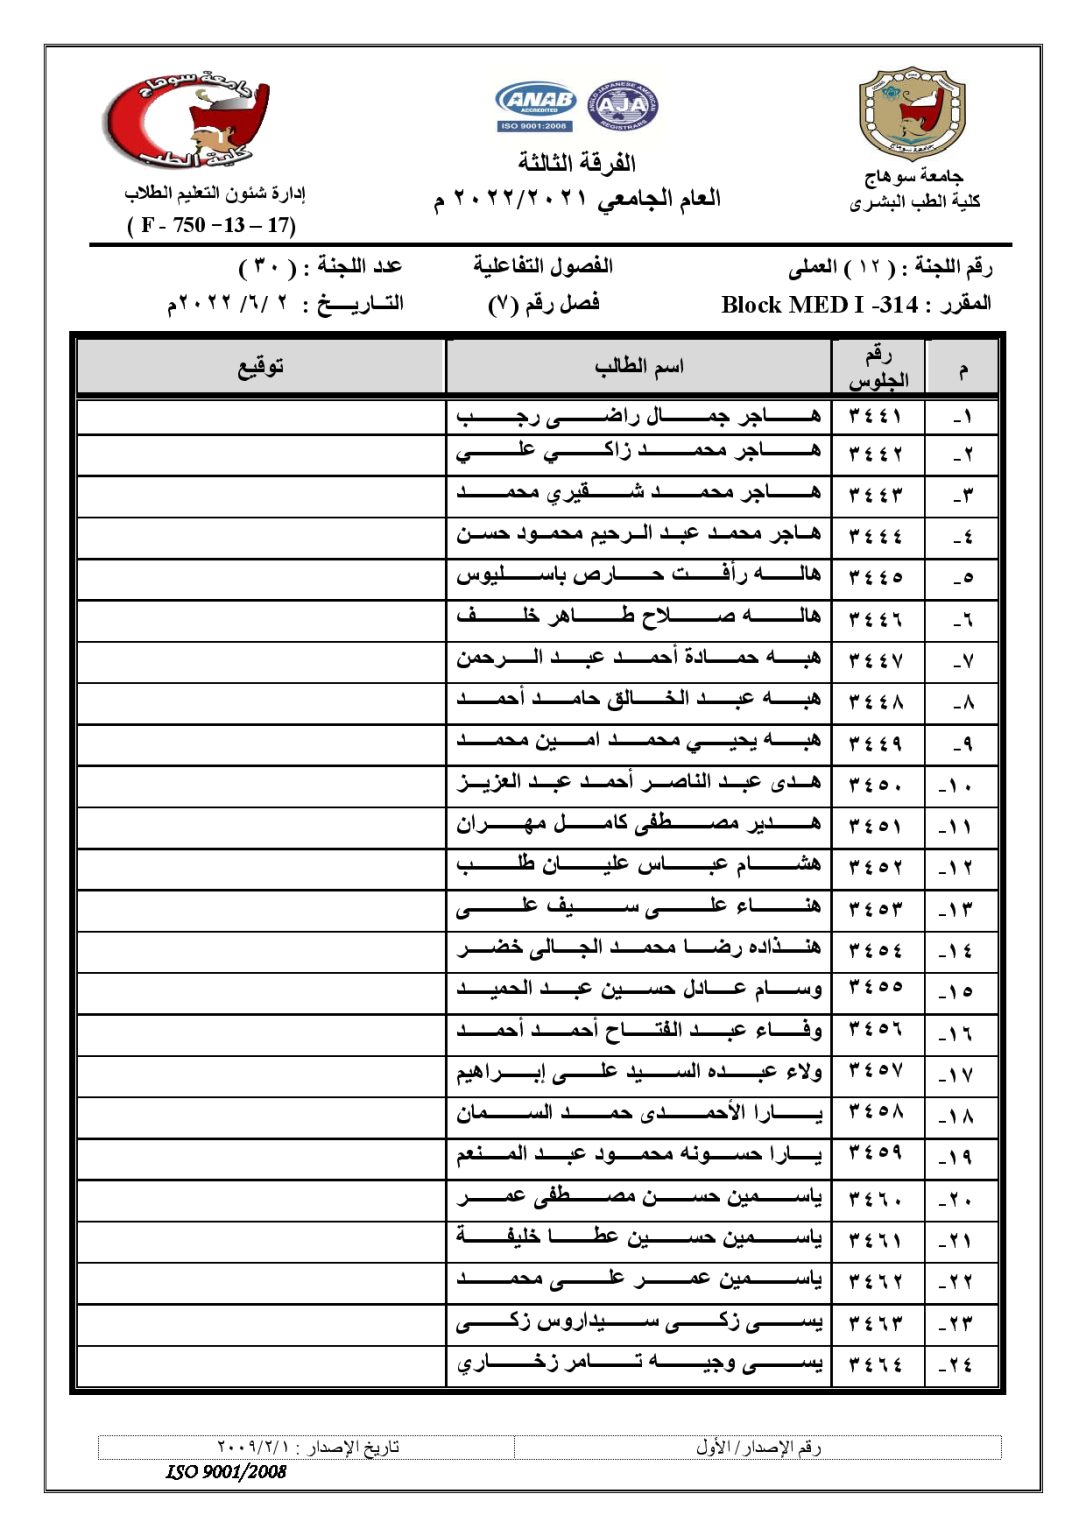 جامعة سوهاج
كلية الطب
ANAB
ACCREDITED
ISO 9001:2008
ANGLO JAPANESE AMERICAN
AJA
REGISTRARS
جامعة سوهاج
جامعة سوهاج
كلية الطب البشرى
الفرقة الثالثة
العام الجامعي ٢٠٢٢/٢٠٢١ م
إدارة شئون التعليم الطلاب
( F - 750 –13 – 17)
رقم اللجنة : ( ١٢ ) العملى الفصول التفاعلية عدد اللجنة : ( ٣٠ )
المقرر : Block MED I -314 فصل رقم (٧) التــاريـــخ : ٢ /٦/ ٢٠٢٢م
م رقم الجلوس اسم الطالب توقيع
١- ٣٤٤١ هاجر جمال راضى رجب
٢- ٣٤٤٢ هاجر محمد زاكي علي
٣- ٣٤٤٣ هاجر محمد شقيري محمد
٤- ٣٤٤٤ هاجر محمد عبد الرحيم محمود حسن
٥- ٣٤٤٥ هاله رأفت حارص باسليوس
٦- ٣٤٤٦ هاله صلاح طاهر خلف
٧- ٣٤٤٧ هبه حمادة أحمد عبد الرحمن
٨- ٣٤٤٨ هبه عبد الخالق حامد أحمد
٩- ٣٤٤٩ هبه يحيي محمد امين محمد
١٠- ٣٤٥٠ هدى عبد الناصر أحمد عبد العزيز
١١- ٣٤٥١ هدير مصطفى كامل مهران
١٢- ٣٤٥٢ هشام عباس عليان طلب
١٣- ٣٤٥٣ هناء على سيف على
١٤- ٣٤٥٤ هنذاده رضا محمد الجالى خضر
١٥- ٣٤٥٥ وسام عادل حسين عبد الحميد
١٦- ٣٤٥٦ وفاء عبد الفتاح أحمد أحمد
١٧- ٣٤٥٧ ولاء عبده السيد على إبراهيم
١٨- ٣٤٥٨ يارا الأحمدى حمد السمان
١٩- ٣٤٥٩ يارا حسونه محمود عبد المنعم
٢٠- ٣٤٦٠ ياسمين حسن مصطفى عمر
٢١- ٣٤٦١ ياسمين حسين عطا خليفة
٢٢- ٣٤٦٢ ياسمين عمر على محمد
٢٣- ٣٤٦٣ يسى زكى سيداروس زكى
٢٤- ٣٤٦٤ يسى وجيه تامر زخاري
رقم الإصدار/ الأول تاريخ الإصدار : ٢٠٠٩/٢/١
ISO 9001/2008